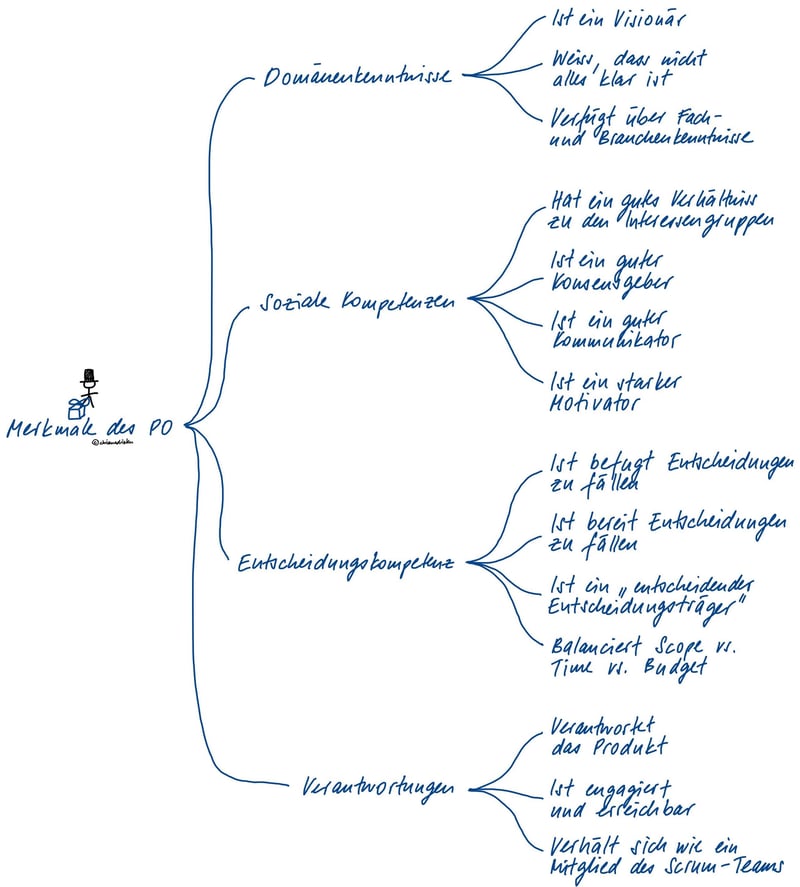 Merkmale des PO
Domänenkenntnisse
Ist ein Visionär
Weiss, dass nicht
alles klar ist
Verfügt über Fach-
und Branchenkenntnisse
Soziale Kompetenzen
Hat ein gutes Verhältniss
zu den Interessengruppen
Ist ein guter
Konsensgeber
Ist ein guter
Kommunikator
Ist ein starker
Motivator
Entscheidungskompetenz
Ist befugt Entscheidungen
zu fällen
Ist bereit Entscheidungen
zu fällen
Ist ein „entscheidender
Entscheidungsträger"
Balanciert Scope vs.
Time vs. Budget
Verantwortungen
Verantwortet
das Produkt
Ist engagiert
und erreichbar
Verhält sich wie ein
Mitglied des Scrum-Teams